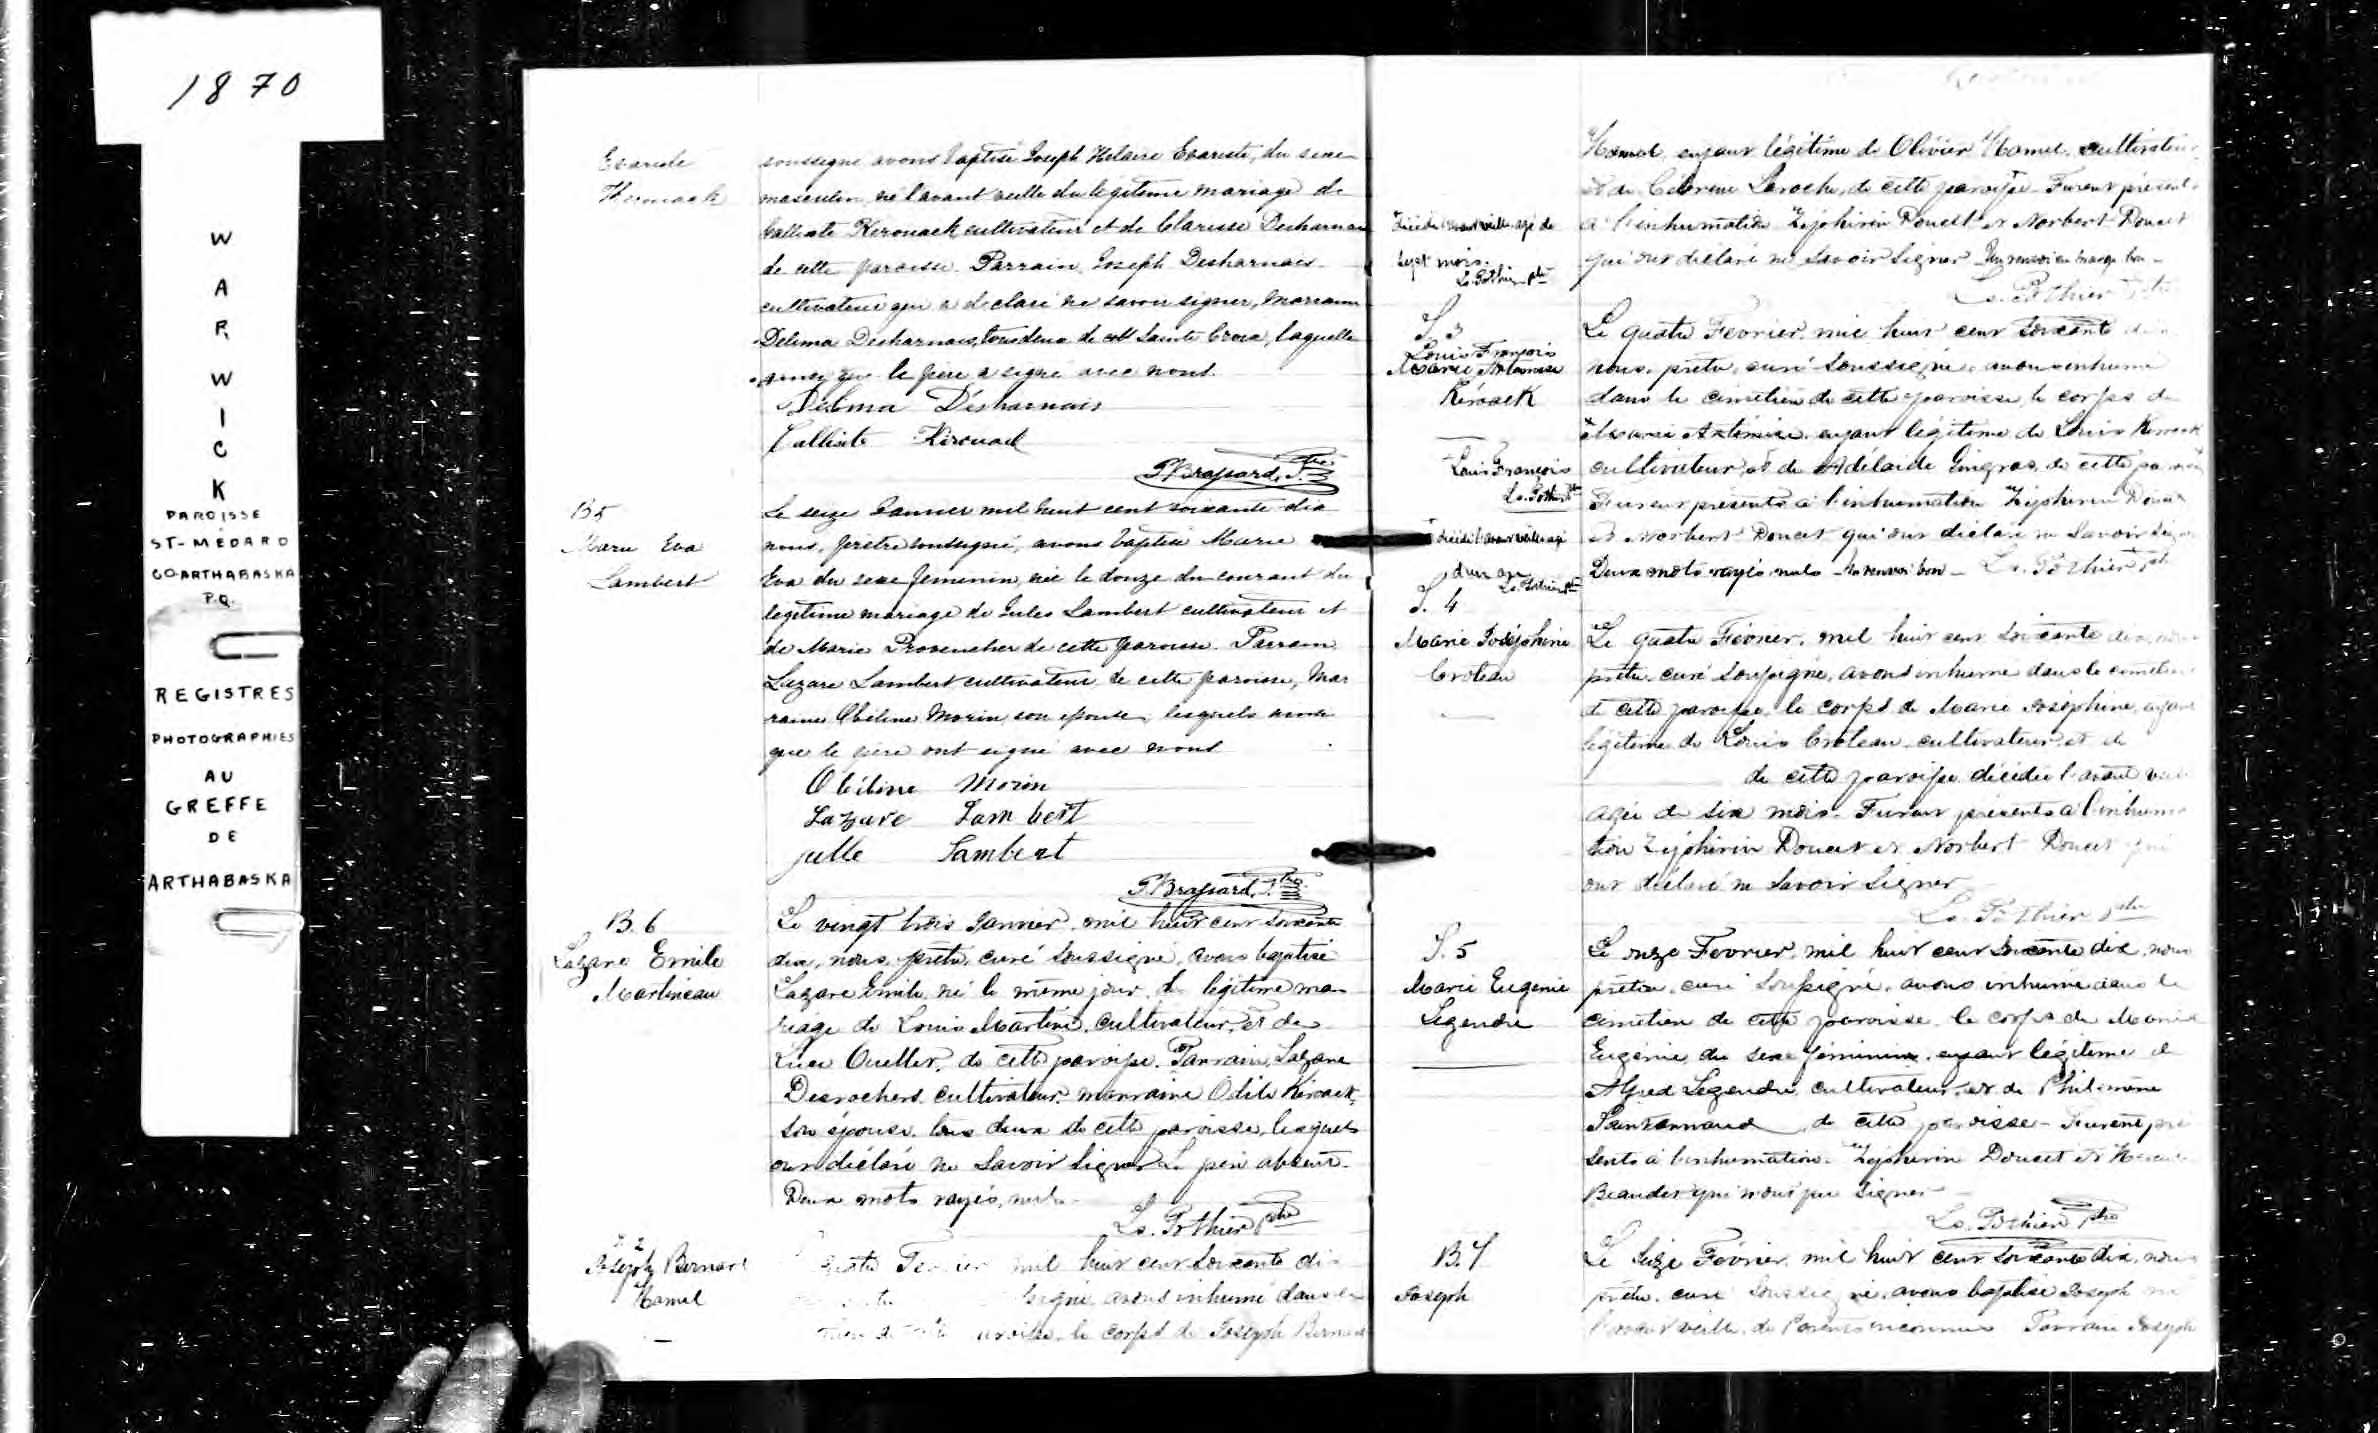 1870
W
A
R
W
I
C
K
PAROISSE
ST-MÉDARD
CO-ARTHABASKA
P.Q.
REGISTRES
PHOTOGRAPHIES
AU
GREFFE
DE
ARTHABASKA
Evariste
soussigné avons baptisé Joseph Hilaire Evariste, du sexe
masculin, né l'avant veille du légitime mariage de
Calixte Kerouack cultivateur et de Clarisse Desharnais
de cette paroisse. Parrain Joseph Desharnais
cultivateur qui a déclaré ne savoir signer, Marraine
Délima Desharnais, tous deux de Sainte Croix, laquelle
ainsi que le père a signé avec nous.
Délima Désharnais
Callixte Kirouack
P. Brassard, Ptre
B 5
Marie Eva
Lambert
Le seize Janvier mil huit cent soixante dix
nous, prêtre soussigné, avons baptisé Marie
Eva du sexe féminin, née le douze du courant du
légitime mariage de Jules Lambert cultivateur et
de Marie Provencher de cette paroisse. Parrain
Lazare Lambert cultivateur de cette paroisse, Mar
raine Obéline Morin, son épouse, lesquels ainsi
que le père ont signé avec nous
Obéline Morin
Lazare Lambert
Julle Lambert
P. Brassard, Ptre
B. 6
Lazare Emile
Martineau
Le vingt trois Janvier, mil huit cent soixante
dix, nous, prêtre, curé soussigné, avons baptisé
Lazare Emile, né le même jour, du légitime ma
riage de Louis Martineau, cultivateur, et de
Luce Ouellet, de cette paroisse. Parrain, Lazare
Desrochers cultivateur, marraine Odile Kirouack,
son épouse, tous deux de cette paroisse, lesquels
ont déclaré ne savoir signer. Le père absent.
Deux mots rayés, nuls.
Ls. Pothier ptre
S. 2
Joseph Bernard
Hamel
quatre Février mil huit cent soixante dix
avons inhumé dans le
le corps de Joseph Bernard
Hamel, enfant légitime de Olivier Hamel, cultivateur,
et de Laroche, de cette paroisse. Furent présents
à l'inhumation Zéphirin Doucet et Norbert Doucet
qui ont déclaré ne savoir signer. Un renvoi en marge bon.
Ls. Pothier Ptre
Décédé l'avant veille agé de
sept mois.
Ls. Pothier ptre
S. 3
Louis François
Marie Artémise
Kérouack
Le quatre Février, mil huit cent soixante dix
nous, prêtre, curé soussigné, avons inhumé
dans le cimetière de cette paroisse, le corps de
Marie Artémise, enfant légitime de Louis Kirouack
cultivateur, et de Adélaïde Gingras, de cette paroisse
Furent présents à l'inhumation Zéphirin Doucet
et Norbert Doucet qui ont déclaré ne savoir signer
Deux mots rayés nuls - un renvoi bon - Ls. Pothier Ptre
Louis François
Ls. Pothier ptre
décédé l'avant veille agé
d'un an
Ls. Pothier ptre
S. 4
Marie Joséphine
Croteau
Le quatre Février, mil huit cent soixante dix, nous
prêtre, curé soussigné, avons inhumé dans le cimetière
de cette paroisse, le corps de Marie Joséphine, enfant
légitime de Louis Croteau, cultivateur, et de
de cette paroisse décédée l'avant veille
agée de six mois. Furent présents à l'inhuma
tion Zéphirin Doucet et Norbert Doucet qui
ont déclaré ne savoir signer
Ls. Pothier ptre
S. 5
Marie Eugénie
Legendre
Le onze Février, mil huit cent soixante dix, nous
prêtre, curé soussigné, avons inhumé dans le
cimetière de cette paroisse, le corps de Marie
Eugénie, du sexe féminin, enfant légitime de
Alfred Legendre, cultivateur, et de Philomène
de cette paroisse - Furent pré
sents à l'inhumation Zéphirin Doucet et
Beaudet
Ls. Pothier Ptre
B. 7
Joseph
Le seize Février, mil huit cent soixante dix, nous
prêtre, curé soussigné, avons baptisé Joseph né
l'avant veille, de Parents inconnus Parrain Joseph